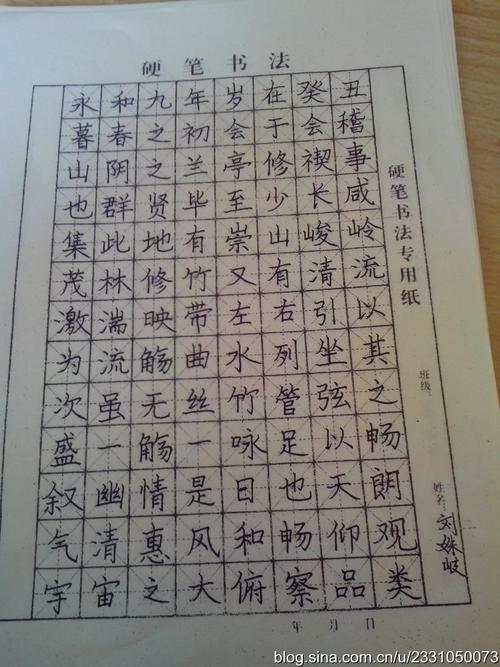 硬笔书法
永和九年岁在癸丑
暮春之初会于会稽
山阴之兰亭修禊事
也群贤毕至少长咸
集此地有崇山峻岭
茂林修竹又有清流
激湍映带左右引以
为流觞曲水列坐其
次虽无丝竹管弦之
盛一觞一咏足以畅
叙幽情是日也天朗
气清惠风和畅仰观
宇宙之大俯察品类
硬笔书法专用纸
班级
姓名 刘姝岐
年 月 日
blog.sina.com.cn/u/2331050073